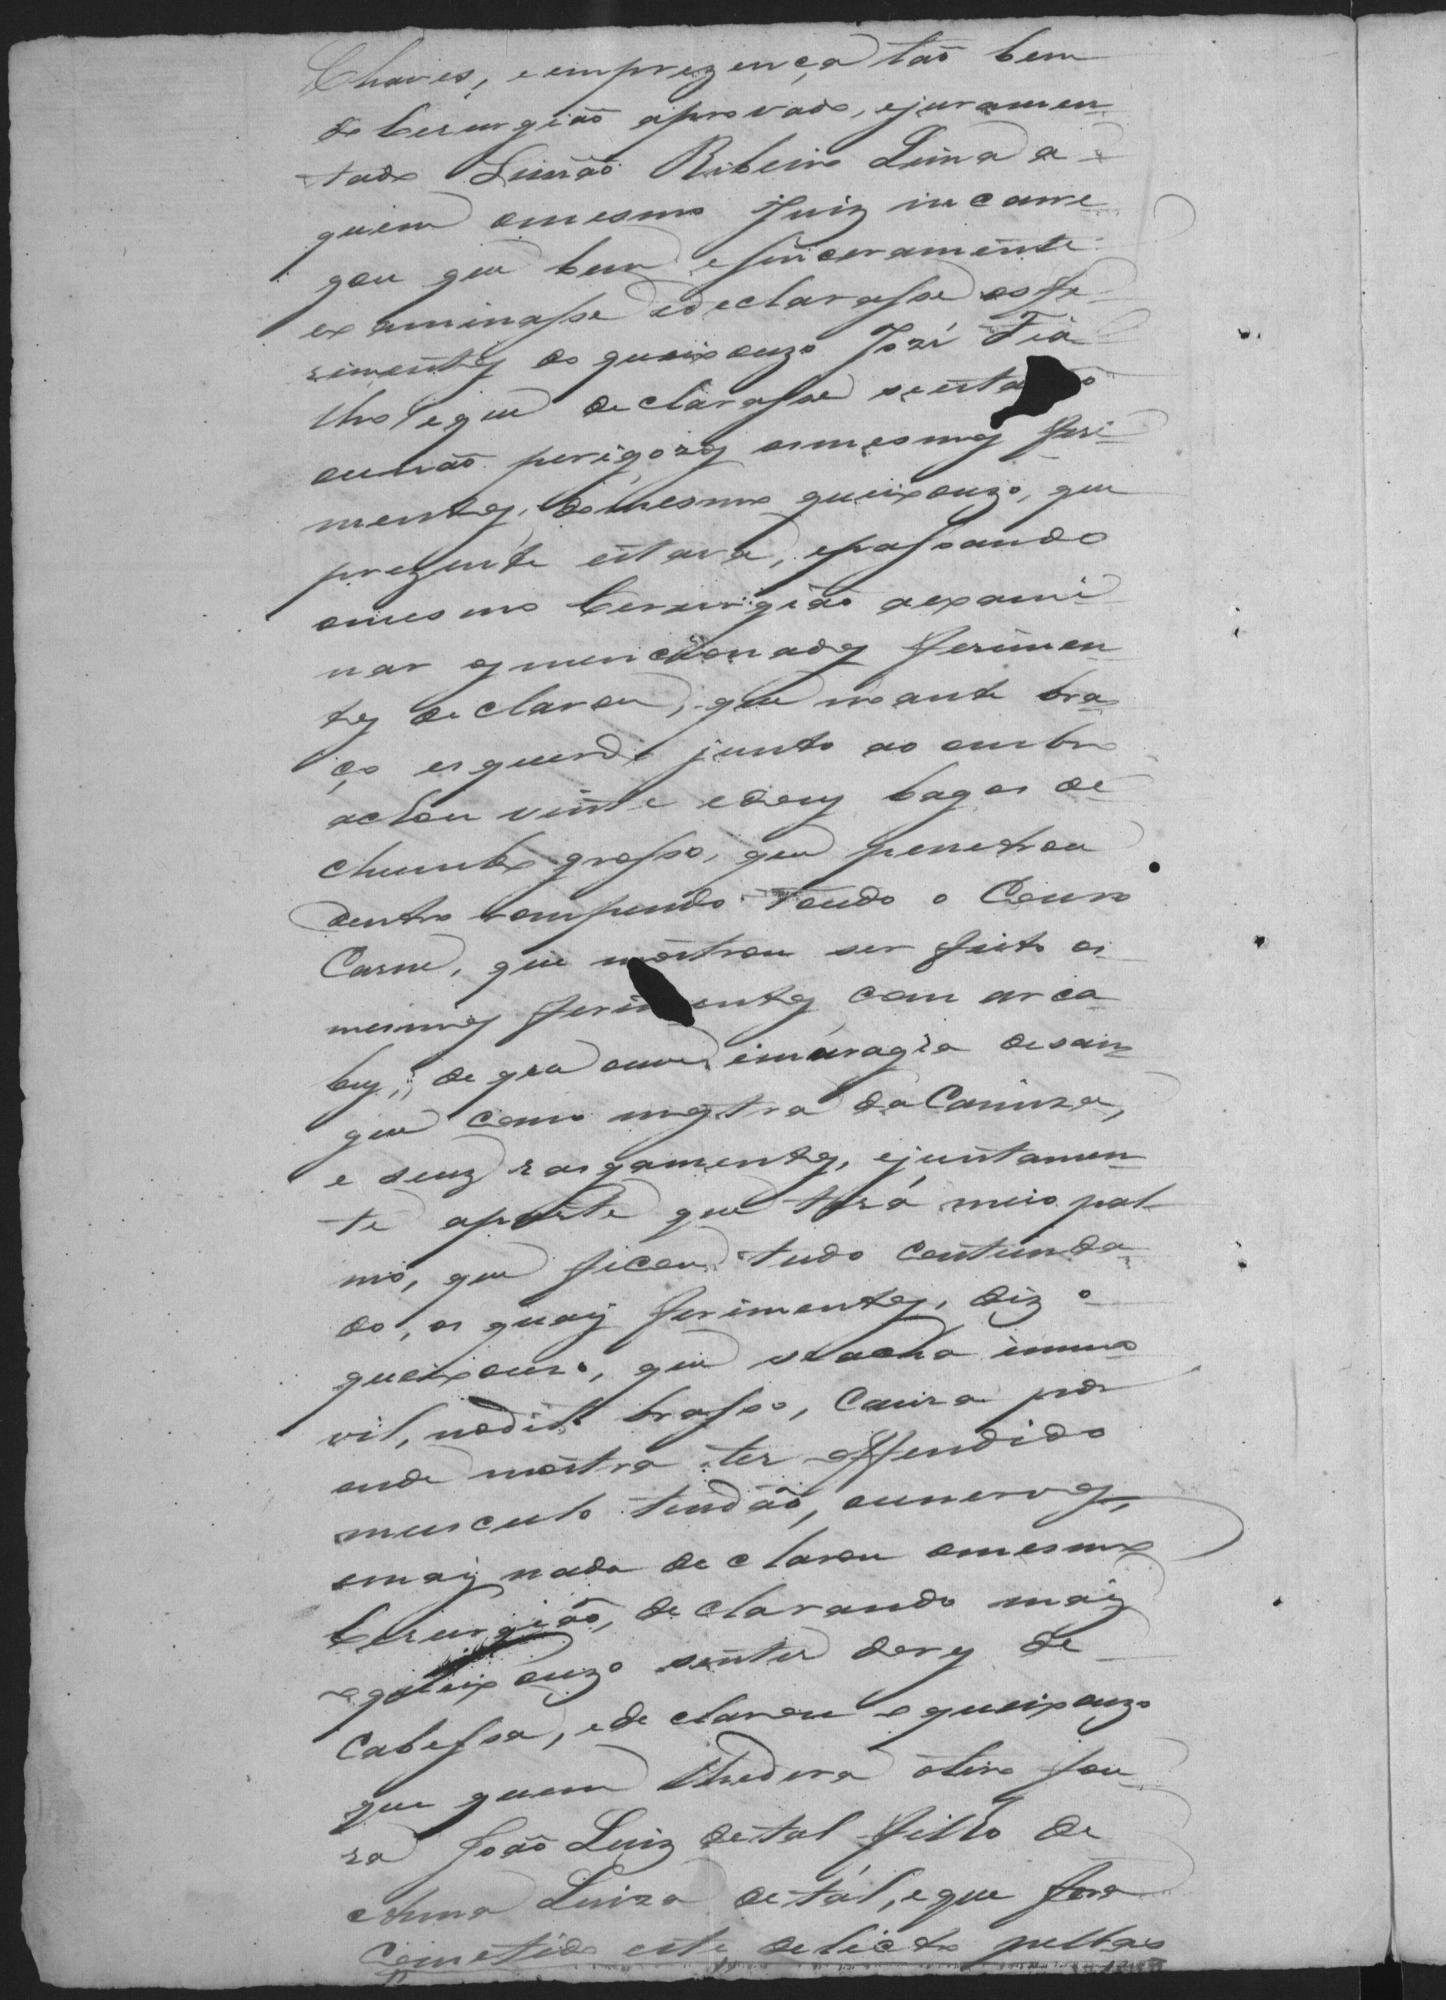 Chaves, e em prezença tão bem
do Cerurgião aprovado, ejuramen-
tado Simão Ribeiro Lima a
quem o mesmo Juiz incarre-
gou que bem e sinceramente
examinasse e declarasse os fe-
rimentos do queixouzo José Fia-
lho e que declarasse se estão
ou não perigozos os mesmos feri-
mentos, do mesmo queixouzo, que
prezente estava, epassando
omesmo Cerurgião aexami-
nar os mencionados ferimen-
tos declarou, que no ante bra-
ço esquerdo junto ao ombro
achou vinte edous bagos de
chumbo grosso, que penetrou
dentro rompendo todo o Couro
Carne, que mostrou ser feito os
mesmos ferimentos com arca-
buz, de que ouve imuragia desan-
gue como mostra da Camiza,
e seuz rasgamentos, ejuntamen-
te aparte que terá meio pal-
mo, que ficou tudo contunda-
do, os quais ferimentos, diz o
queixouzo, que seacha immo-
vil, nodito brasso, Cauza por
onde mostra ter offendido
musculo tendão, ounervos,
emais nada declarou omesmo
Cerurgião, declarando mais
o queixouzo sentir dores de
Cabessa, ede clarou o queixouzo
que quem lhedera otiro fou-
ra João Luiz detal filho de
Anna Luiza de tál, e que fora
Cometido este delicto pellas